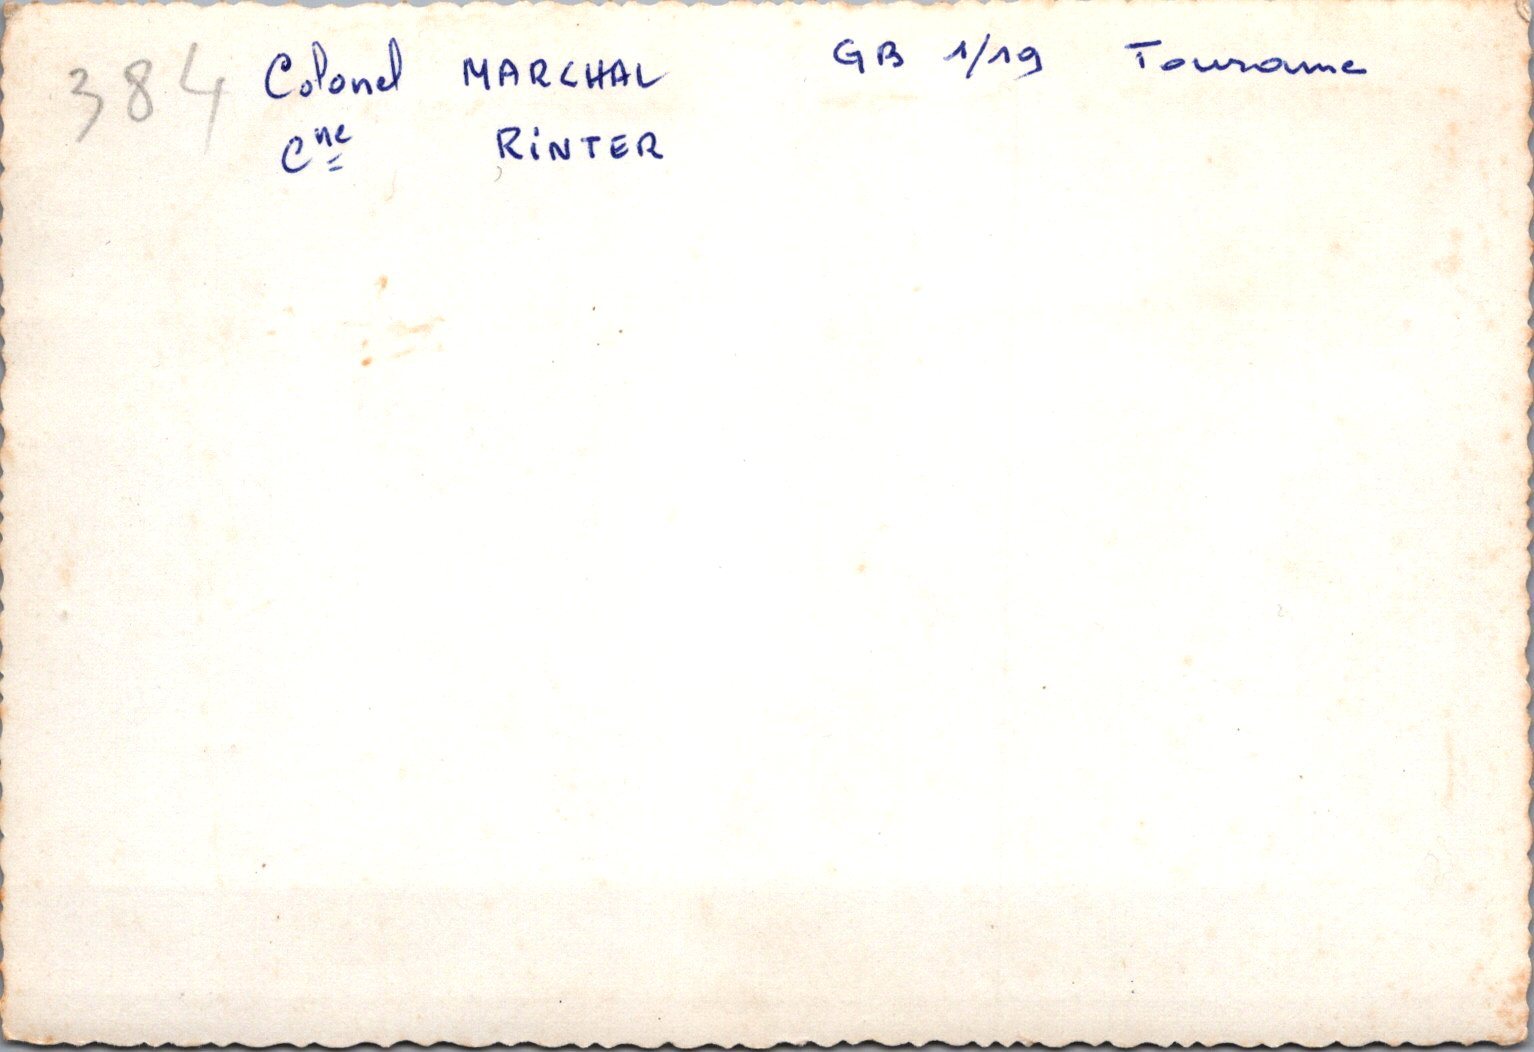 384 Colonel MARCHAL GB 1/19 Tourane
Cne RiNTER